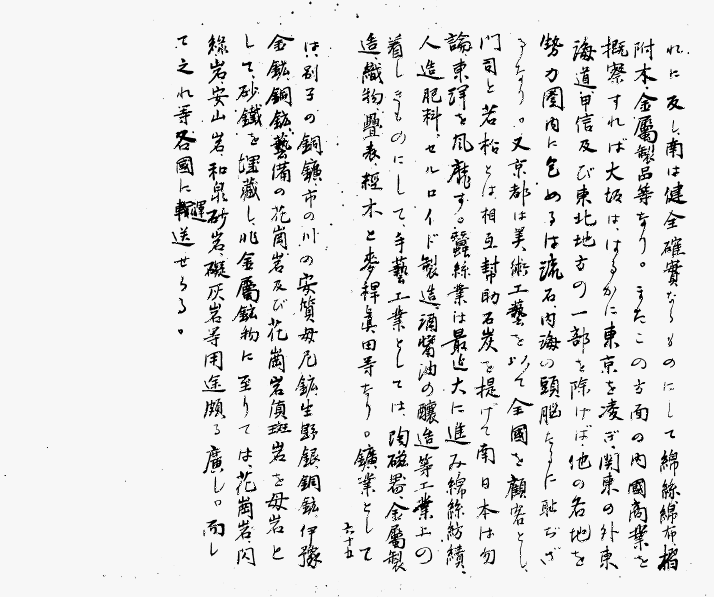 れに反し、南は健全確實なるものにして綿絲綿布、摺
附木金屬製品等なり。またこの方面の内國商業を
概察すれば大坂は、はるかに東京を凌ぎ、関東の外東
海道、甲信及び東北地方の一部を除けば他の各地を
勢力圏内に包めるは流石、内海の頭脳たるに恥ぢざ
るなり。又京都は美術工藝を以て全國を顧客とし、
門司と若松とは、相互幇助石炭を提げて南日本は勿
論東洋を風靡す。蠶絲業は最近大に進み綿絲紡績、
人造肥料、セルロイド製造、酒醤油の釀造等工業上の
着しきものにして、手藝工業としては、陶磁器、金屬製
造、織物、疊表、經木と麥稈眞田等なり。鑛業として
六十五
は、別子の銅鑛、市の川の安質母尼鉱、生野銀銅鉱、伊豫
金鉱銅鉱、藝備の花崗岩及び花崗岩、偵斑岩を母岩と
して、砂鐵を埋藏し、非金屬鉱物に至りては、花崗岩、閃
綠岩、安山岩、和泉砂岩、凝灰岩等用途頗る廣し。而し
て之れ等各國に運送せらる。